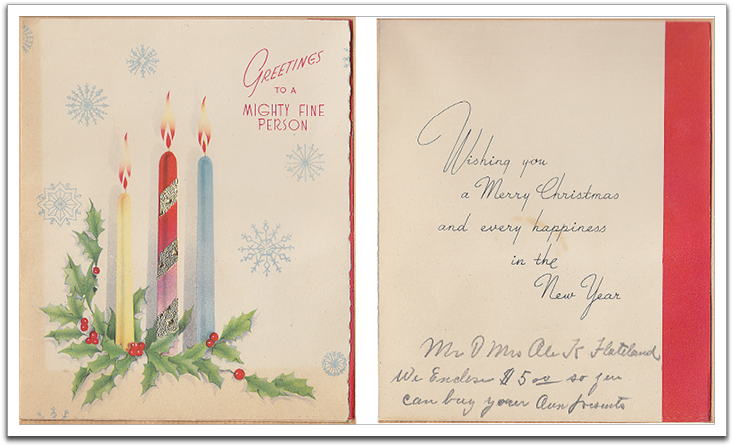 Greetings
TO A
MIGHTY FINE
PERSON
Wishing you
a Merry Christmas
and every happiness
in the
New Year
Mr & Mrs Ole K Flateland
We Enclose $5 00 so you
can buy your Own presents